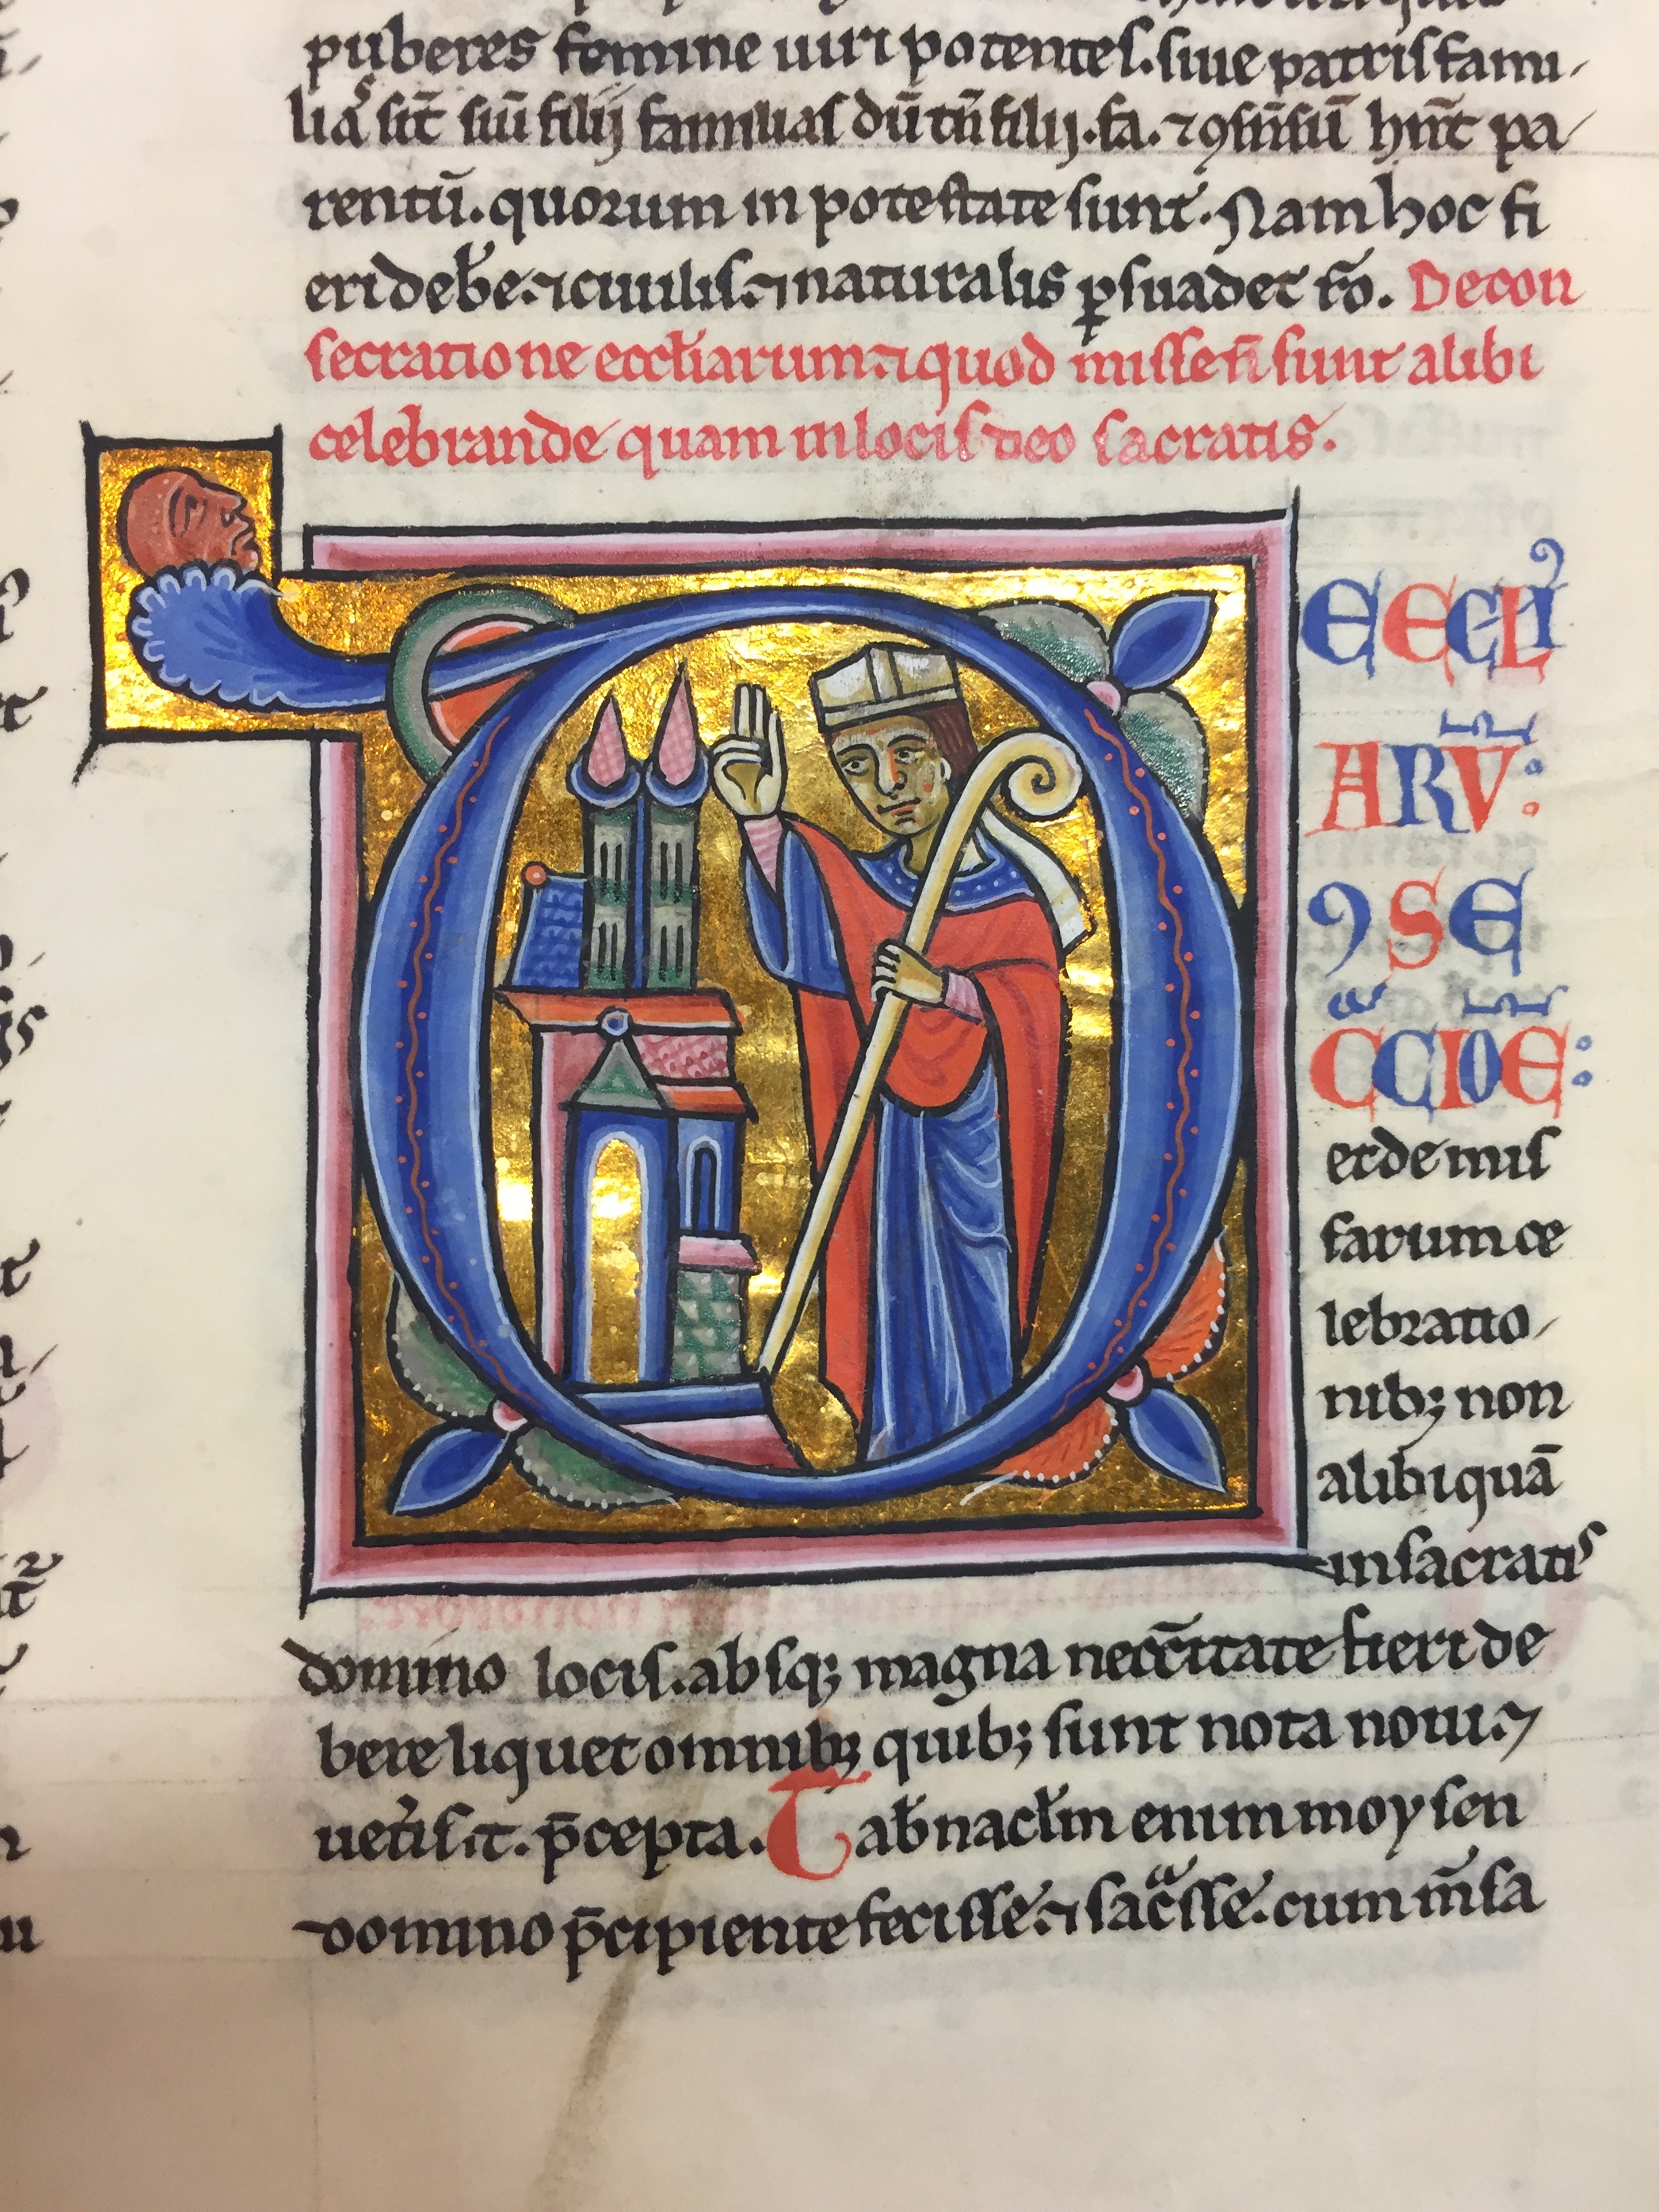 puberes femine uiri potentes. siue patrisfami
lias sīt siū filij familias dū tn̄ filij. fa. ⁊ ꝯsn̄sū hn̄t pa
rentū. quorum in potestate sunt. Nam hoc fi
eri deb̄e. ⁊ ciuilis. ⁊ naturalis ꝑsuadet r̄o. De con
secratione eccl̄iarum. ⁊ quod misse n̄ sunt alibi
celebrande quam in locis deo sacratis.
D E ECCLI
ARV̄:
ꝯSE
CͣCIŌE:
et de mis
sarum ce
lebratio
nibꝫ non
alibi quā
in sacratis
domino locis. absqꝫ magna nec̄c̄itate fieri de
bere liquet omnibꝫ quibꝫ sunt nota noui. ⁊
uet̄is. t. p̄cepta. Tab̄nacl̄m enim moysen
domino p̄cipiente fecisse. ⁊ sacͣsse. cum m̄sa